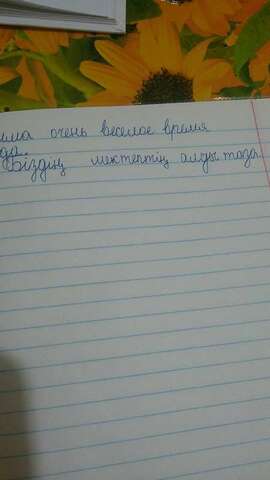 има очень веселое время
да.
Біздің мектептің алды таза.